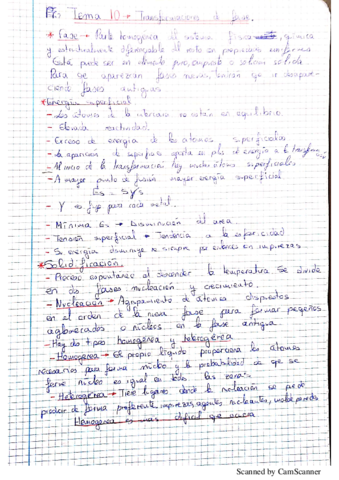 Tema 10 → Transformaciones de fase.
* Fase → Parte homogénea del sistema física, química
y estructuralmente diferenciable del resto en propiedades
Esta puede ser un elemento puro, compuesto o solución sólida
Para que aparezcan fases nuevas, tendrán que ir desapare-
ciendo fases antiguas
* Energía superficial
- Los átomos de la intercara no están en equilibrio
- Elevada reactividad.
- Exceso de energía de los átomos superficiales
- La aparición de superficies aporta un plus de energía a la transforma
- Al inicio de la transformación hay muchos átomos superficiales
- A mayor punto de fusión mayor energía superficial
Es = Sγs
- γ es fijo para cada metal.
- Mínima Es → Disminución del area
- Tensión superficial → Tendencia a la esfericidad
- Si energía disminuye no siempre por entornos en impurezas
* Solidificación.
- Proceso espontáneo al descender la temperatura. Se divide
en dos fases nucleación y crecimiento.
- Nucleación → Agrupamiento de átomos dispuestos
en el orden de la nueva fase para formar pequeños
aglomerados o núcleos en la fase antigua
- Hay dos tipos homogénea y heterogénea
- Homogénea → El propio líquido proporciona los átomos
necesarios para formar núcleo y la probabilidad de que se
forme núcleo es igual en todas las zonas.
- Heterogénea → Tiene lugares donde la nucleación se puede
producir de forma preferente, impurezas, agentes nucleantes, molde paredes
Homogénea es más difícil que ocurra
Scanned by CamScanner